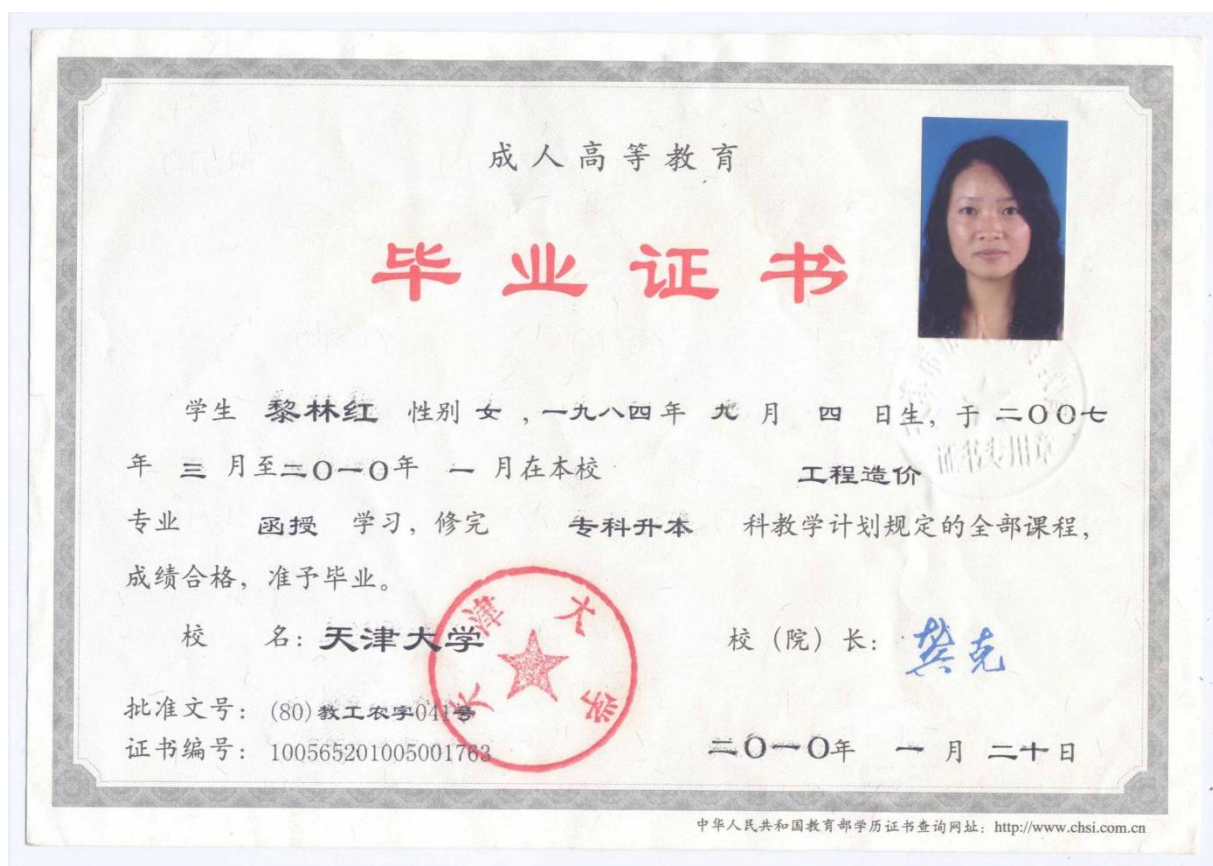 成人高等教育
毕业证书
学生 黎林红 性别 女，一九八四年 九 月 四 日生，于 二〇〇七
年 三 月至二〇一〇年 一 月在本校 工程造价
专业 函授 学习，修完 专科升本 科教学计划规定的全部课程，
成绩合格，准予毕业。
校 名：天津大学 校（院）长：龚克
天津大学
批准文号：(80)教工农字041号
证书编号：100565201005001763 二〇一〇年 一 月 二十日
中华人民共和国教育部学历证书查询网址：http://www.chsi.com.cn